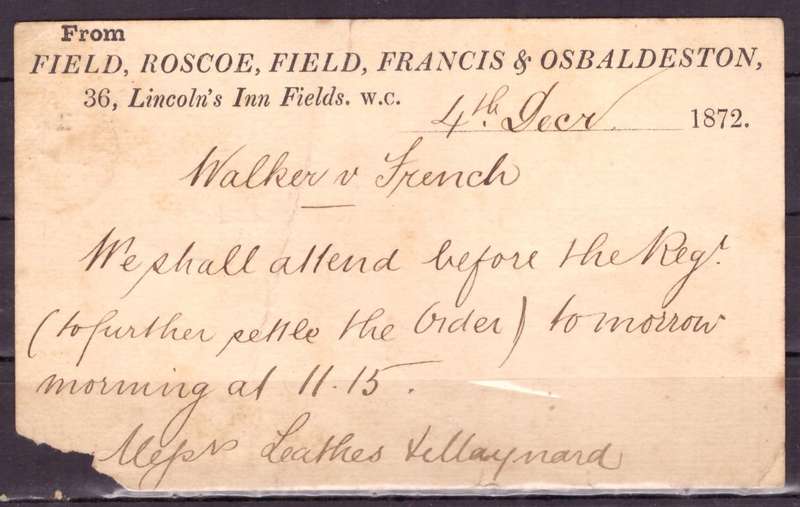 From
FIELD, ROSCOE, FIELD, FRANCIS & OSBALDESTON,
36, Lincoln's Inn Fields. W.C.
4th. Decr 1872.
Walker v French
We shall attend before the Regr.
(to further settle the Order) to morrow
morning at 11.15.
Messrs Leathes & Maynard